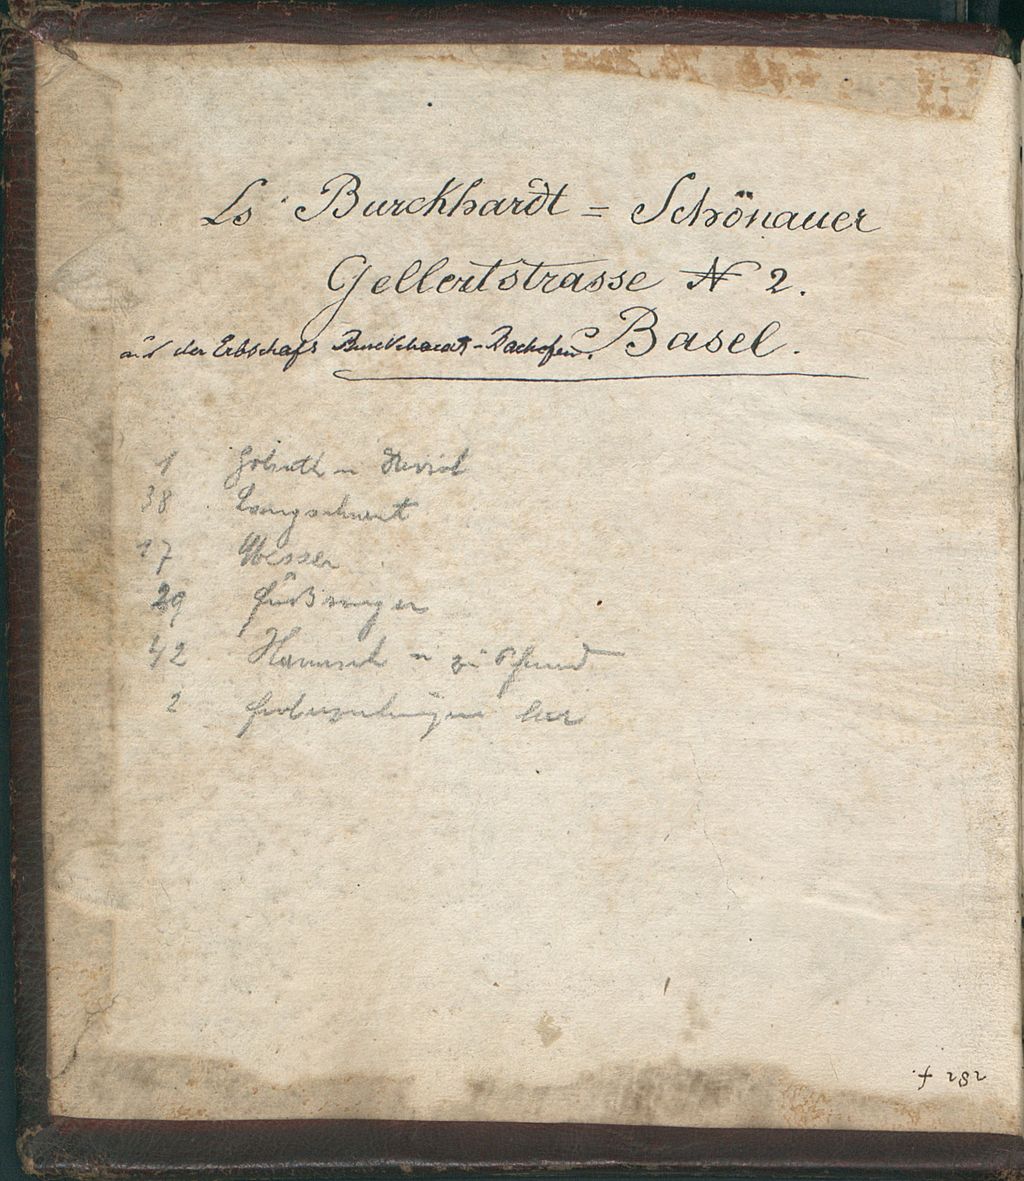 Ls Burckhardt = Schönauer
Gellertstrasse N 2.
aus der Erbschaft Burckhardt-Bachofen. Basel.
1 Goliath u David
38 Langschwert
17 Messer
29 Fußringen
42 Harnisch u zu Pferd
2
f 282